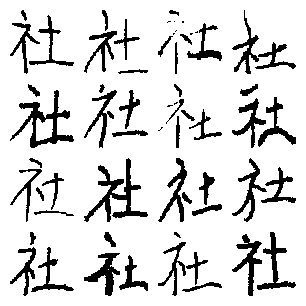 社社社社
社社社社
社社社社
社社社社